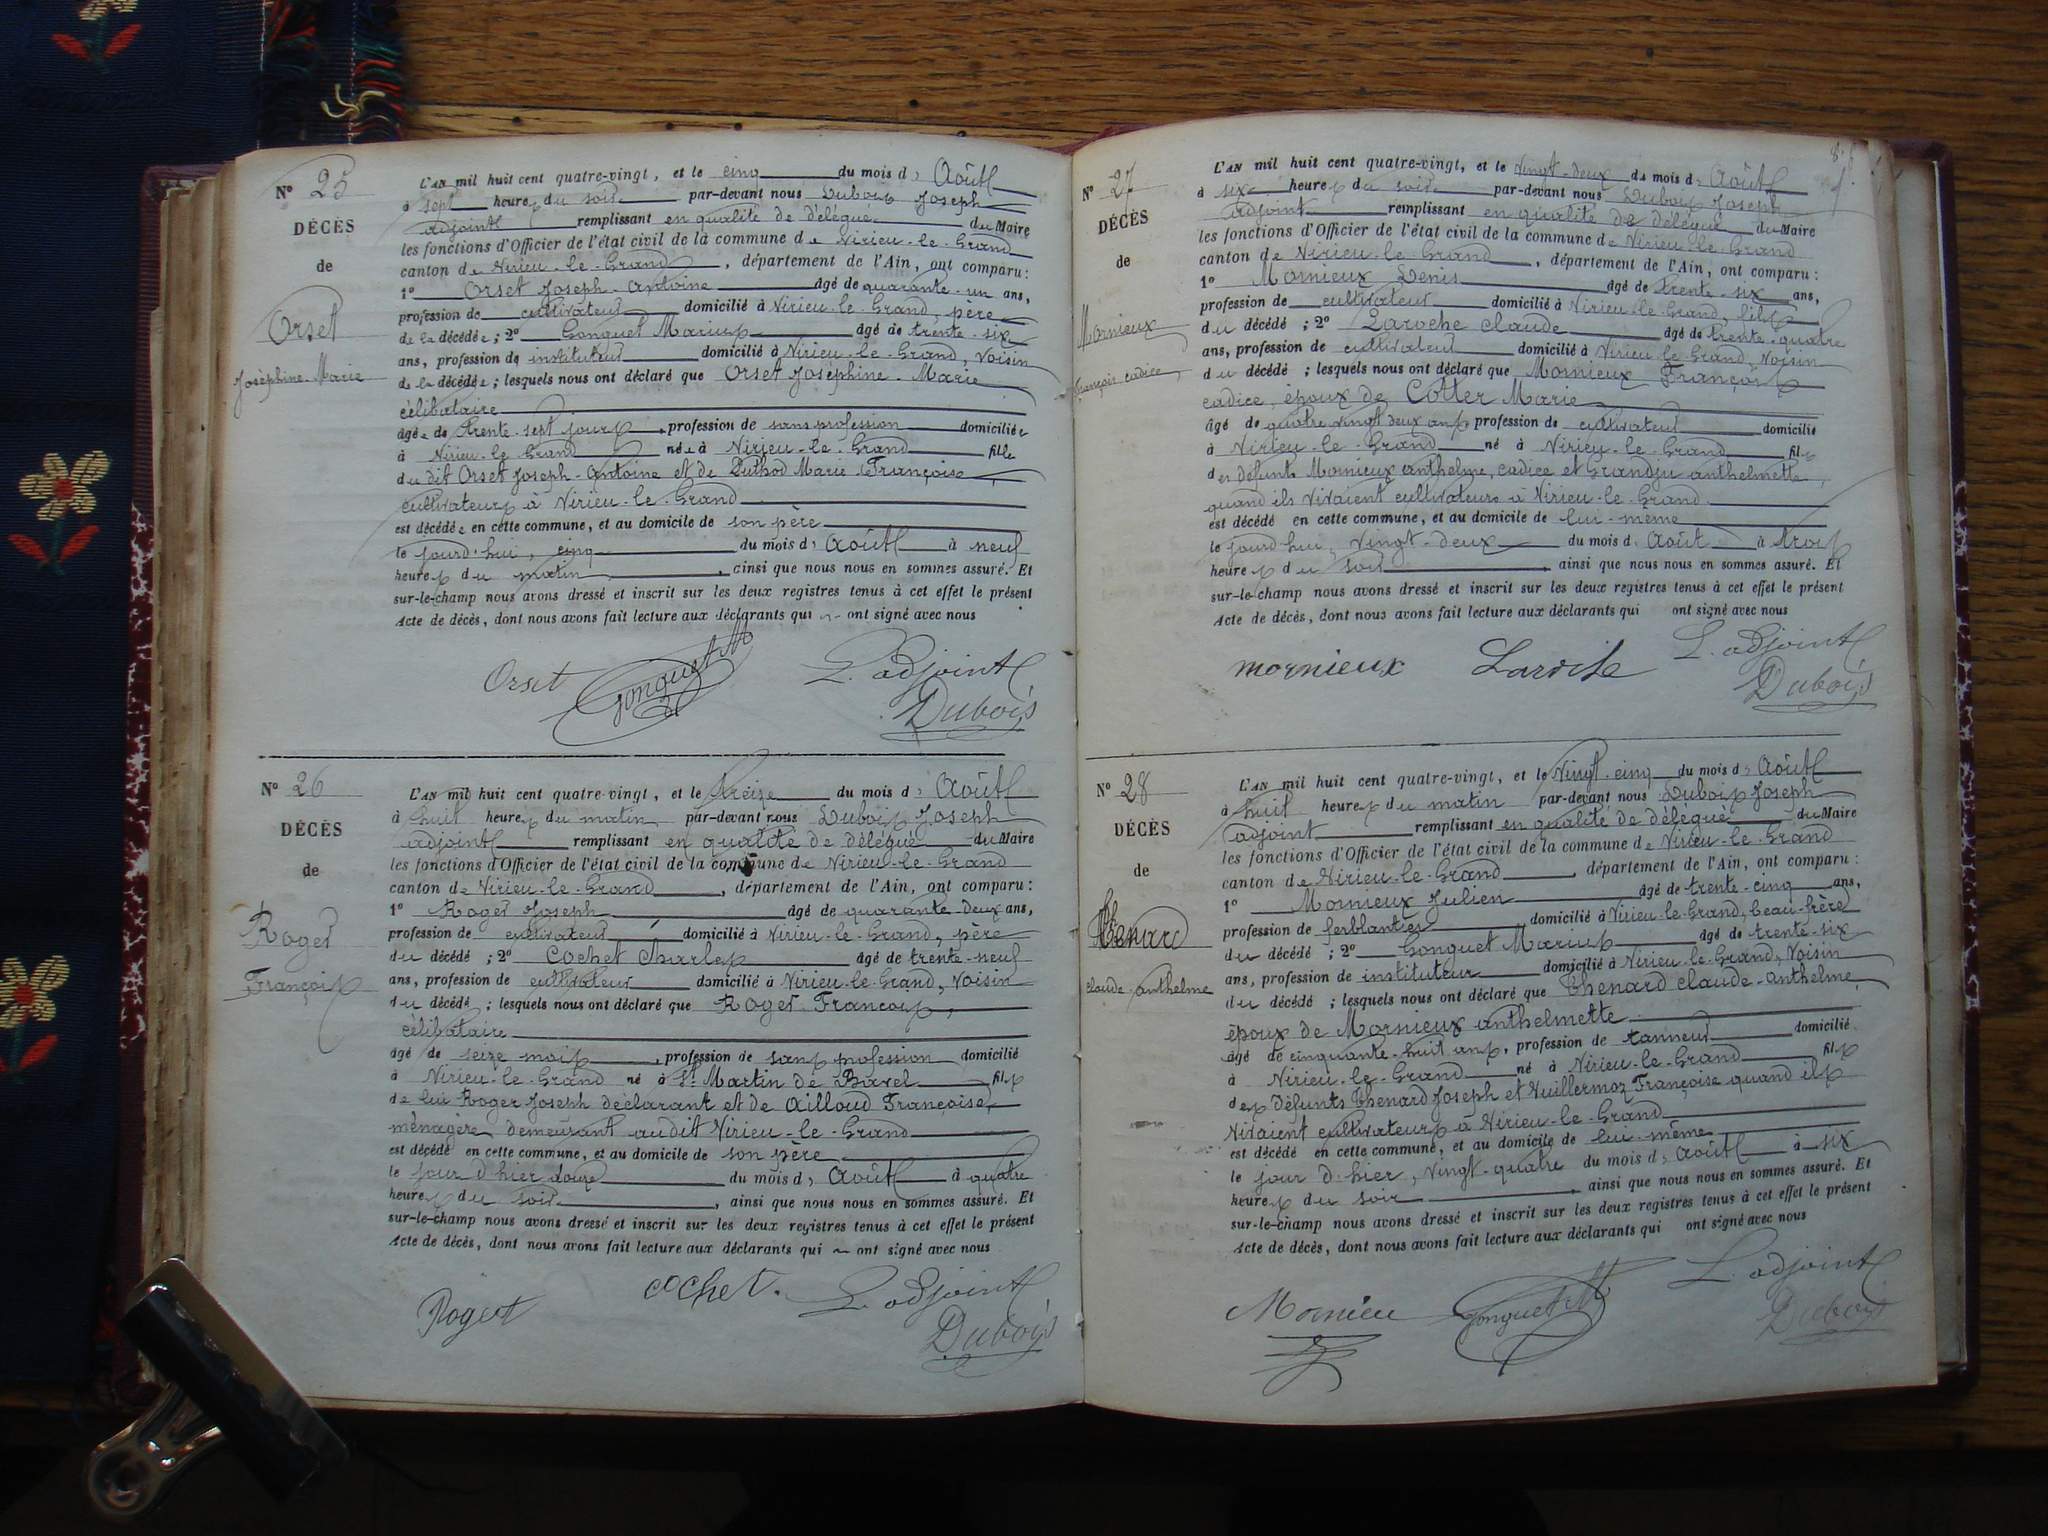 Nº 25
DÉCÈS
de
Orset
Joséphine-Marie
L'AN mil huit cent quatre-vingt, et le cinq du mois d' Août
à sept heures du soir par-devant nous Dubois Joseph
adjoint remplissant en qualité de délégué du Maire
les fonctions d'Officier de l'état civil de la commune de Virieu-le-Grand
canton de Virieu-le-Grand, département de l'Ain, ont comparu :
1º Orset Joseph-Antoine âgé de quarante-un ans,
profession de cultivateur domicilié à Virieu-le-Grand, père
de la décédée ; 2º Gonguet Marius âgé de trente-six
ans, profession de instituteur domicilié à Virieu-le-Grand, voisin
de la décédée ; lesquels nous ont déclaré que Orset Joséphine-Marie
célibataire
âgée de trente-sept jours, profession de sans profession domiciliée
à Virieu-le-Grand née à Virieu-le-Grand fille
du dit Orset Joseph-Antoine et de Puthod Marie Françoise,
cultivateurs à Virieu-le-Grand
est décédée en cette commune, et au domicile de son père
le jourd'hui, cinq du mois d' Août à neuf
heures du matin, ainsi que nous nous en sommes assuré. Et
sur-le-champ nous avons dressé et inscrit sur les deux registres tenus à cet effet le présent
Acte de décès, dont nous avons fait lecture aux déclarants qui ont signé avec nous
Orset Gonguet M L'adjoint
Dubois
Nº 26
DÉCÈS
de
Roger
François
L'AN mil huit cent quatre-vingt, et le treize du mois d' Août
à huit heures du matin par-devant nous Dubois Joseph
adjoint remplissant en qualité de délégué du Maire
les fonctions d'Officier de l'état civil de la commune de Virieu-le-Grand
canton de Virieu-le-Grand, département de l'Ain, ont comparu :
1º Roger Joseph âgé de quarante-deux ans,
profession de cultivateur domicilié à Virieu-le-Grand, père
du décédé ; 2º Cochet Charles âgé de trente-neuf
ans, profession de cultivateur domicilié à Virieu-le-Grand, voisin
du décédé ; lesquels nous ont déclaré que Roger François,
célibataire
âgé de seize mois, profession de sans profession domicilié
à Virieu-le-Grand né à St Martin de Bavel fils
de lui Roger Joseph déclarant et de Ailloud Françoise,
ménagère demeurant audit Virieu-le-Grand
est décédé en cette commune, et au domicile de son père
le jour d'hier douze du mois d' Août à quatre
heures du soir, ainsi que nous nous en sommes assuré. Et
sur-le-champ nous avons dressé et inscrit sur les deux registres tenus à cet effet le présent
Acte de décès, dont nous avons fait lecture aux déclarants qui ont signé avec nous
Roger cochet. L'adjoint
Dubois
Nº 27
DÉCÈS
de
Mornieux
François cadice
L'AN mil huit cent quatre-vingt, et le vingt-deux du mois d' Août
à six heures du soir par-devant nous Dubois Joseph
adjoint remplissant en qualité de délégué du Maire
les fonctions d'Officier de l'état civil de la commune de Virieu-le-Grand
canton de Virieu-le-Grand, département de l'Ain, ont comparu :
1º Mornieux Denis âgé de trente-six ans,
profession de cultivateur domicilié à Virieu-le-Grand, fils
du décédé ; 2º Laroche Claude âgé de trente-quatre
ans, profession de cultivateur domicilié à Virieu-le-Grand, voisin
du décédé ; lesquels nous ont déclaré que Mornieux François
cadice, époux de Cotter Marie
âgé de quatre vingt deux ans, profession de cultivateur domicilié
à Virieu-le-Grand né à Virieu-le-Grand fils
des défunts Mornieux anthelme, cadice et Grandju anthelmette,
quand ils vivaient cultivateurs à Virieu-le-Grand
est décédé en cette commune, et au domicile de lui-même
le jourd'hui, vingt-deux du mois d' Août à trois
heures du soir, ainsi que nous nous en sommes assuré. Et
sur-le-champ nous avons dressé et inscrit sur les deux registres tenus à cet effet le présent
Acte de décès, dont nous avons fait lecture aux déclarants qui ont signé avec nous
mornieux L'adjoint
Dubois
Nº 28
DÉCÈS
de
Thenard
claude-anthelme
L'AN mil huit cent quatre-vingt, et le vingt-cinq du mois d' Août
à huit heures du matin par-devant nous Dubois Joseph
adjoint remplissant en qualité de délégué du Maire
les fonctions d'Officier de l'état civil de la commune de Virieu-le-Grand
canton de Virieu-le-Grand, département de l'Ain, ont comparu :
1º Mornieux Julien âgé de trente-cinq ans,
profession de ferblantier domicilié à Virieu-le-Grand, beau-frère
du décédé ; 2º Gonguet Marius âgé de trente-six
ans, profession de instituteur domicilié à Virieu-le-Grand, voisin
du décédé ; lesquels nous ont déclaré que Thenard claude-anthelme,
époux de Mornieux anthelmette
âgé de cinquante-huit ans, profession de tanneur domicilié
à Virieu-le-Grand né à Virieu-le-Grand fils
des défunts Thenard Joseph et Vuillermoz Françoise quand ils
vivaient cultivateurs à Virieu-le-Grand
est décédé en cette commune, et au domicile de lui-même
le jour d'hier, vingt-quatre du mois d' Août à six
heures du soir, ainsi que nous nous en sommes assuré. Et
sur-le-champ nous avons dressé et inscrit sur les deux registres tenus à cet effet le présent
Acte de décès, dont nous avons fait lecture aux déclarants qui ont signé avec nous
Mornieu Gonguet M L'adjoint
Dubois